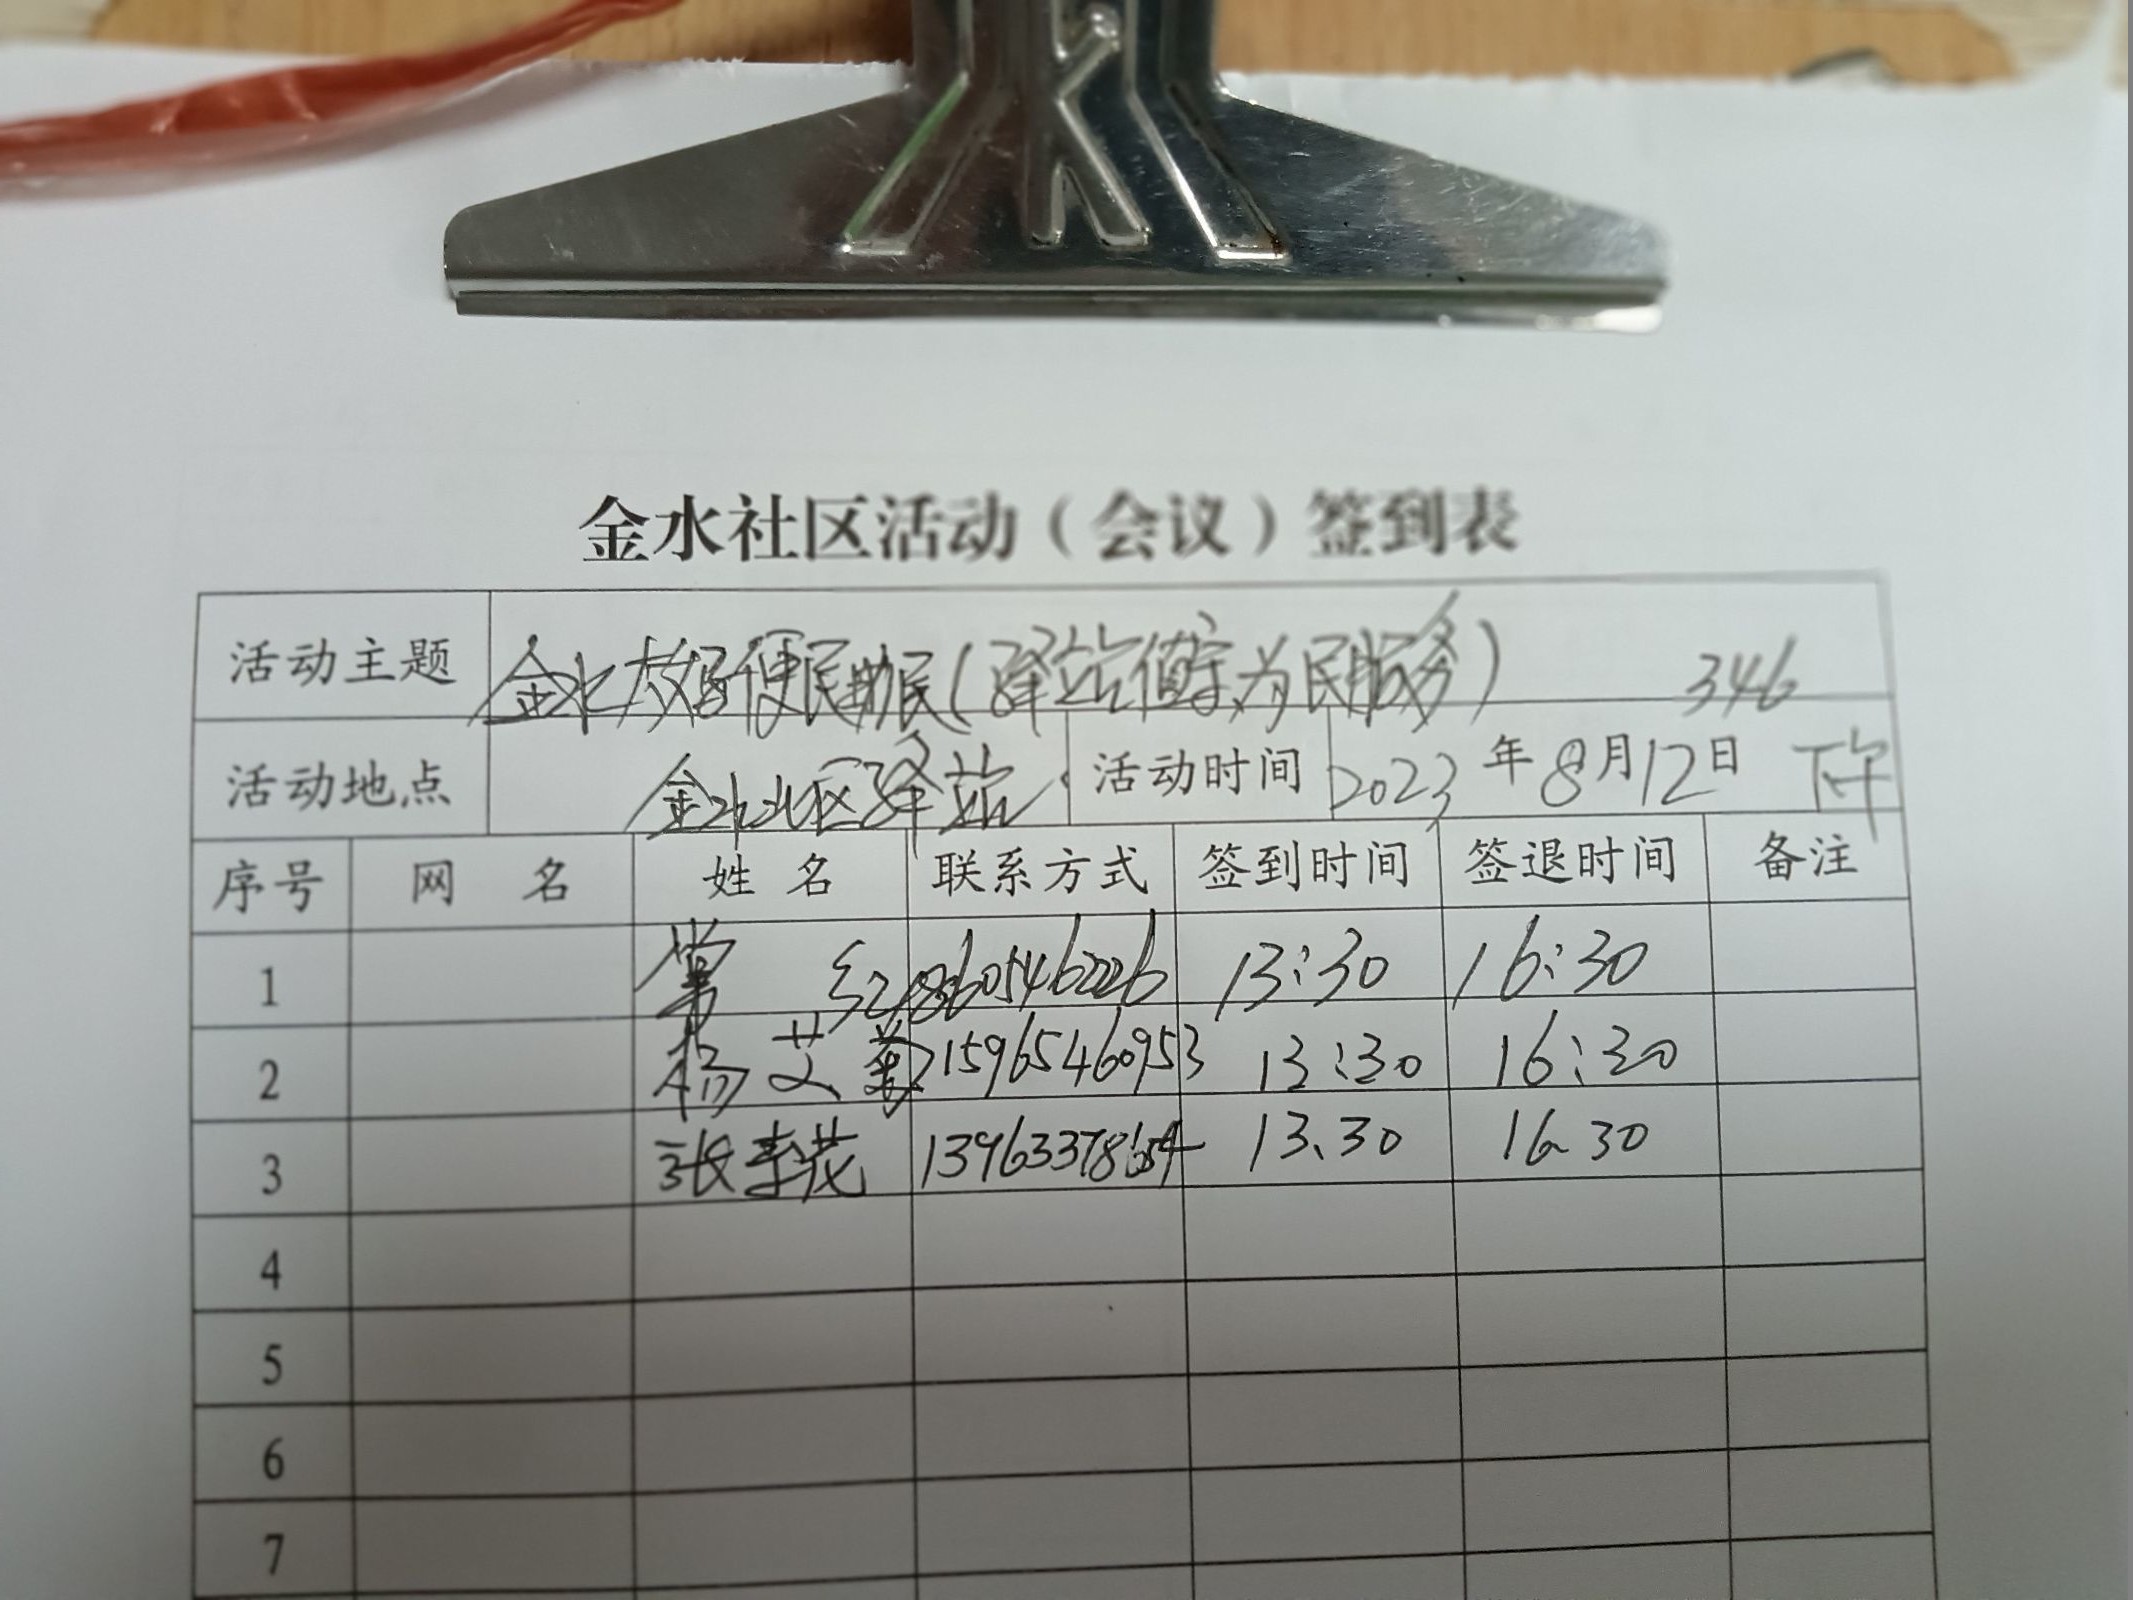 金水社区活动（会议）签到表
活动主题 金水故好便民助民(驿站值守,为民服务) 346
活动地点 金水社区驿站 活动时间 2023年8月12日 下午
序号 网 名 姓 名 联系方式 签到时间 签退时间 备注
1 红 18605462226 13:30 16:30
2 杨艾菊 15965460953 13:30 16:30
3 张李花 13963378654 13.30 16.30
4
5
6
7